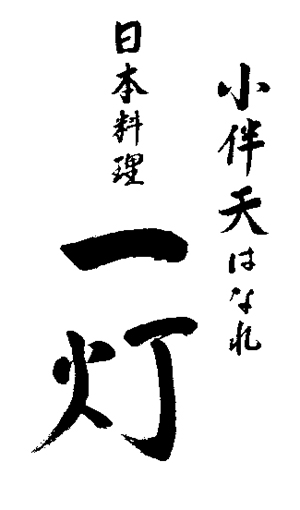 小伴天はなれ
日本料理
一灯